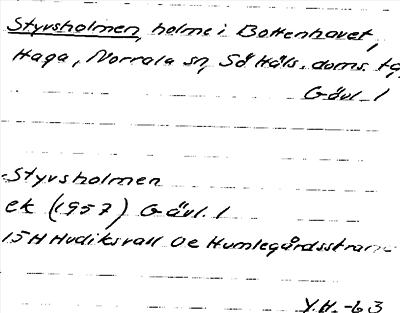 Styvsholmen, holme i Bottenhavet,
Haga, Norrala sn, Sö Häls. doms. tg,
Gävl. l
Styvsholmen
ek (1957) Gävl. l
15H Hudiksvall Oe Humlegårdsstrand
Y.H. -63